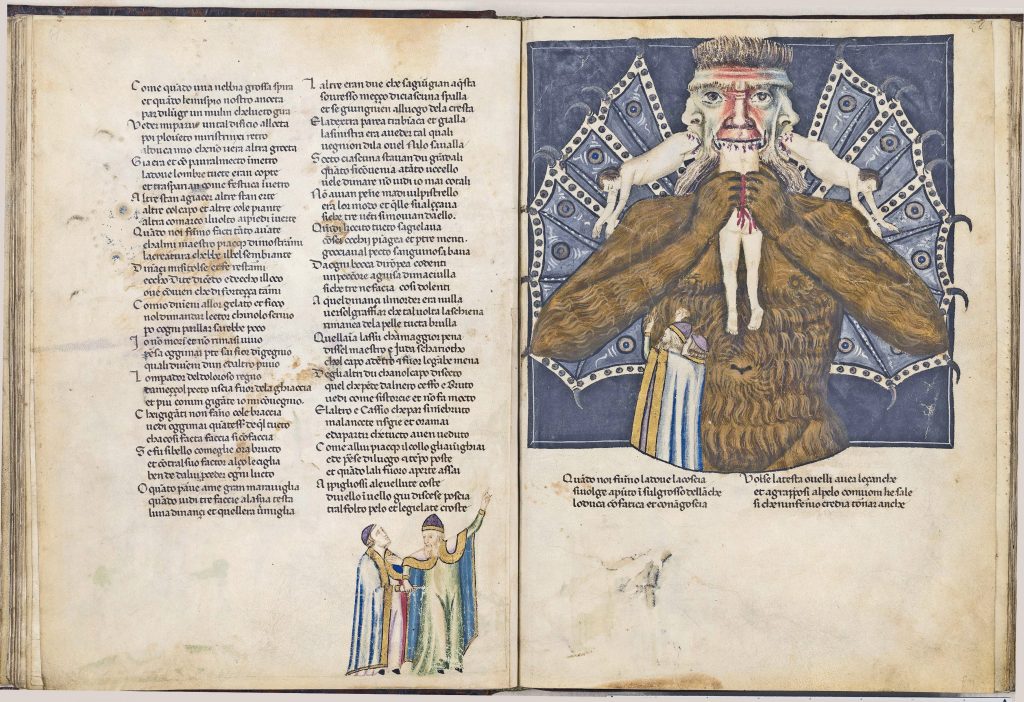 Come quãdo una nebbia grossa spira
et quãdo lemispio nostro anocta
par dilũgi un mulin cheluento gira
Veder mi parue un tal dificio allocta
poi plouento mi ristrinsi retro
alduca mio che nõ uera altra grocta
Gia era et cõ paura lmecto ĩmetro
ladoue lombre tucte eran copte
et traspariã come festuca ĩ uetro
Altre stan agiacer altre stan erte
altre col capo et altre cole piante
altra comarco il uolto apiedi inerte
Quãdo noi fũmo facti tãto auãte
chalmi maestro piacq; dimostrarmi
la creatura chebbe il bel sembiante
Dinãci misi tolse et fe restarmi
ecco dite dicẽdo et ecco il loco
oue cõuien che di forteçça tarmi
Comio diuẽni allor gelato et fioco
nol dimandar lector chi nolo scriuo
po cogni parllar sarebbe poco
Io nõ mori et nõ rimasi uiuo
pẽsa oggimai pte sai fior digegnio
quali diuẽni dun et daltro priuo
Lomperador del doloroso regno
da meççol pecto uscia fuor dela ghiaccia
et piu conun gigãte io mi cõuegnio
Che i gigãti non fãno cole braccia
uedi oggimai quãtess deq̃l tucto
cha cosi facta faccia si cõfaccia
Se fu si bello comegli e ora bructo
et contral suo factor alço le ciglia
ben de da lui pceder ogni lucto
O quãto parue ame gran marauiglia
quãdo uidi tre faccie ala sua testa
luna dinançi et quella era ũmiglia
Laltre eran due che sagiũgian aq̃sta
souresso meçço di ciascuna spalla
et se giungnien alluogo dela cresta
El a dextra parea tra biãca et gialla
la sinistra era aueder tal quali
uegnion di la ouel Nilo saualla
Socto ciascuna stauan du grãdali
quãto si cõuenia atãto uccello
uele dimare nõ uidi io mai cotali
Nõ auian pẽne ma di uilpistrello
era lor modo et q̃lle suolaçaua
siche tre uẽti si mouian da ello
Quĩdi cocito tucto sagielaua
cõ sei occhi piãgea et p tre menti
gocciaual piãto sanguinosa baua
Da ogni bocca dirõpea co denti
un peccore aguisa di maciulla
siche tre ne facia cosi dolenti
A quel dinançi il morder era nulla
uersol graffiar che taluolta la schiena
rimanea dela pelle tucta brulla
Quellaĩa lassu cha maggior pena
disse l maestro e Juda scharioto
chel capo adẽtro et fuor legãbe mena
Degli altri du chanol capo disocto
quel che pẽde dal nero ceffo e Bruto
uedi come si storcie et nõ fa mocto
El altro e Cassio che par si mẽbruto
ma la nocte risurgie et oramai
e da partir che tucto auen ueduto
Come allui piacq; il collo gli auĩghiai
et e pẽse di luogo et tẽpo poste
et quãdo lali fuoro aperte assai
Appigliossi ale uellute coste
di uello ĩ uello giu discese poscia
tral folto pelo et le gielate croste
Quãdo noi fũmo ladoue la coscia
si uolge apũto ĩ sul grosso dellãche
loduca cõ fatica et con ãgoscia
Volse la testa ouelli auea le çanche
et agrappossi al pelo com uom che sale
si che nĩferno credia tornar anche